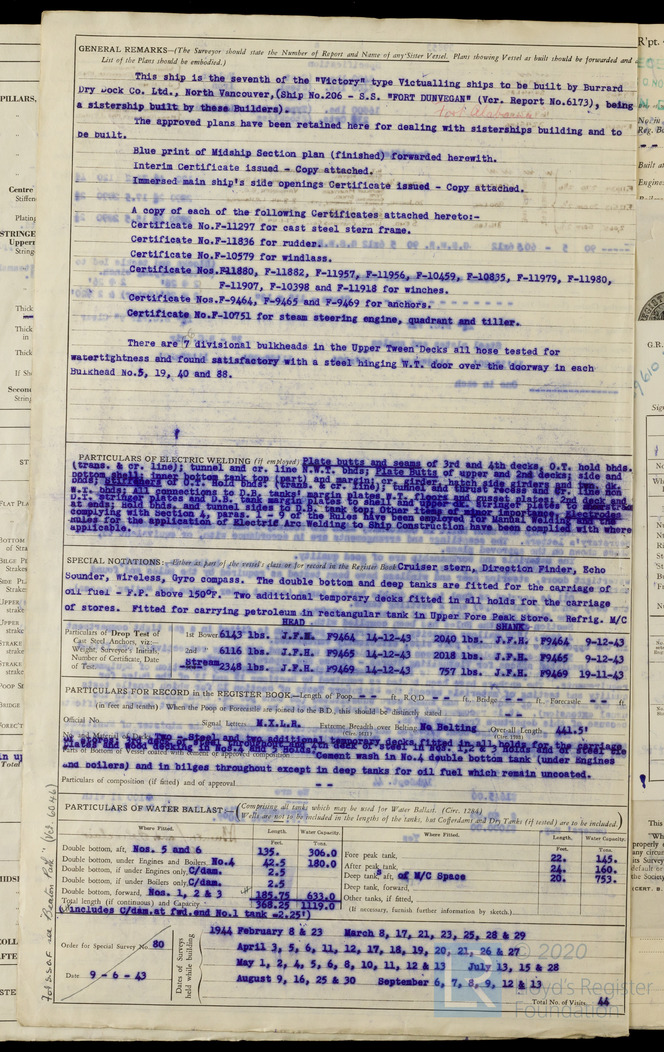 GENERAL REMARKS—(The Surveyor should state the Number of Report and Name of any Sister Vessel. Plans showing Vessel as built should be forwarded and
List of the Plans should be embodied.)
This ship is the seventh of the "Victory" type Victualling ships to be built by Burrard
Dry Dock Co. Ltd., North Vancouver,(Ship No.206 - S.S. "FORT DUNVEGAN" (Ver. Report No.6173), being
a sistership built by these Builders).
Fort Alabama
The approved plans have been retained here for dealing with sisterships building and to
be built.
Blue print of Midship Section plan (finished) forwarded herewith.
Interim Certificate issued - Copy attached.
Immersed main ship's side openings Certificate issued - Copy attached.
A copy of each of the following Certificates attached hereto:-
Certificate No.F-11297 for cast steel stern frame.
Certificate No.F-11836 for rudder.
Certificate No.F-10579 for windlass.
Certificate Nos.F11880, F-11882, F-11957, F-11956, F-10459, F-10835, F-11979, F-11980,
F-11907, F-10398 and F-11918 for winches.
Certificate Nos.F-9464, F-9465 and F-9469 for anchors.
Certificate No.F-10751 for steam steering engine, quadrant and tiller.
There are 7 divisional bulkheads in the Upper Tween Decks all hose tested for
watertightness and found satisfactory with a steel hinging W.T. door over the doorway in each
Bulkhead No.5, 19, 40 and 88.
PARTICULARS OF ELECTRIC WELDING (if employed) Plate butts and seams of 3rd and 4th decks, O.T. hold bhds.
(trans. & cr. line); tunnel and cr. line N.W.T. bhds; Plate Butts of upper and 2nd decks; side and
bottom shell; inner bottom tank top (part) and margin; cr. girder, hatch side girders and
complying with Section 4, Paras 1 - 9 of the Rules have been employed for Manual Welding and the
Rules for the application of Electric Arc Welding to Ship Construction have been complied with where
applicable.
SPECIAL NOTATIONS:—Either as part of the vessel's class or for record in the Register Book Cruiser stern, Direction Finder, Echo
Sounder, Wireless, Gyro compass. The double bottom and deep tanks are fitted for the carriage of
oil fuel - F.P. above 150°F. Two additional temporary decks fitted in all holds for the carriage
of stores. Fitted for carrying petroleum in rectangular tank in Upper Fore Peak Store. Refrig. M/C
HEAD SHANK
Particulars of Drop Test of Cast Steel Anchors, viz:— Weight, Surveyor's Initials, Number of Certificate, Date of Test.
1st Bower 6143 lbs. J.F.H. F9464 14-12-43 2040 lbs. J.F.H. F9464 9-12-43
2nd " 6116 lbs. J.F.H. F9465 14-12-43 2018 lbs. J.F.H. F9465 9-12-43
Stream 2348 lbs. J.F.H. F9469 14-12-43 757 lbs. J.F.H. F9469 19-11-43
PARTICULARS FOR RECORD in the REGISTER BOOK—Length of Poop - - ft., R.Q.D. - - ft., Bridge - - ft., Forecastle - - ft.
(in feet and tenths) When the Poop or Forecastle are joined to the B.D., this should be distinctly stated
Official No. Signal Letters M.X.L.R. Extreme Breadth over Belting No Belting Over-all Length 441.5'
Two - Steel and two additional temporary decks fitted in all holds for the carriage
Parts of Bottom of Vessel coated with cement or approved composition Cement wash in No.4 double bottom tank (under Engines
and boilers) and in bilges throughout except in deep tanks for oil fuel which remain uncoated.
Particulars of composition (if fitted) and of approval - -
PARTICULARS OF WATER BALLAST:—(Comprising all tanks which may be used for Water Ballast. (Circ. 1284)
Wells are not to be included in the lengths of the tanks, but Cofferdams and Dry Tanks (if tested) are to be included.)
Where Fitted. Length. Water Capacity. Where Fitted. Length. Water Capacity.
Feet. Tons. Feet. Tons.
Double bottom, aft, Nos. 5 and 6 135. 306.0 Fore peak tank, 22. 145.
Double bottom, under Engines and Boilers, No.4 42.5 180.0 After peak tank, 24. 160.
Double bottom, if under Engines only, C/dam. 2.5 Deep tank, aft, of M/C Space 20. 753.
Double bottom, if under Boilers only, C/dam. 2.5 Deep tank, forward,
Double bottom, forward, Nos. 1, 2 & 3 185.75 633.0 Other tanks, if fitted,
Total length (if continuous) and Capacity 368.25 1119.0 (If necessary, furnish further information by sketch.)
(includes C/dam.at fwd.end No.1 tank =2.25')
Order for Special Survey No. 80
Date 9 - 6 - 43
Dates of Surveys held while building
1944 February 8 & 23 March 8, 17, 21, 23, 25, 28 & 29
April 3, 5, 6, 11, 12, 17, 18, 19, 20, 21, 26 & 27
May 1, 2, 4, 5, 6, 8, 10, 11, 12 & 13 July 13, 15 & 28
August 9, 16, 25 & 30 September 6, 7, 8, 9, 12 & 13
Total No. of Visits 44
© 2020
Lloyd's Register
Foundation